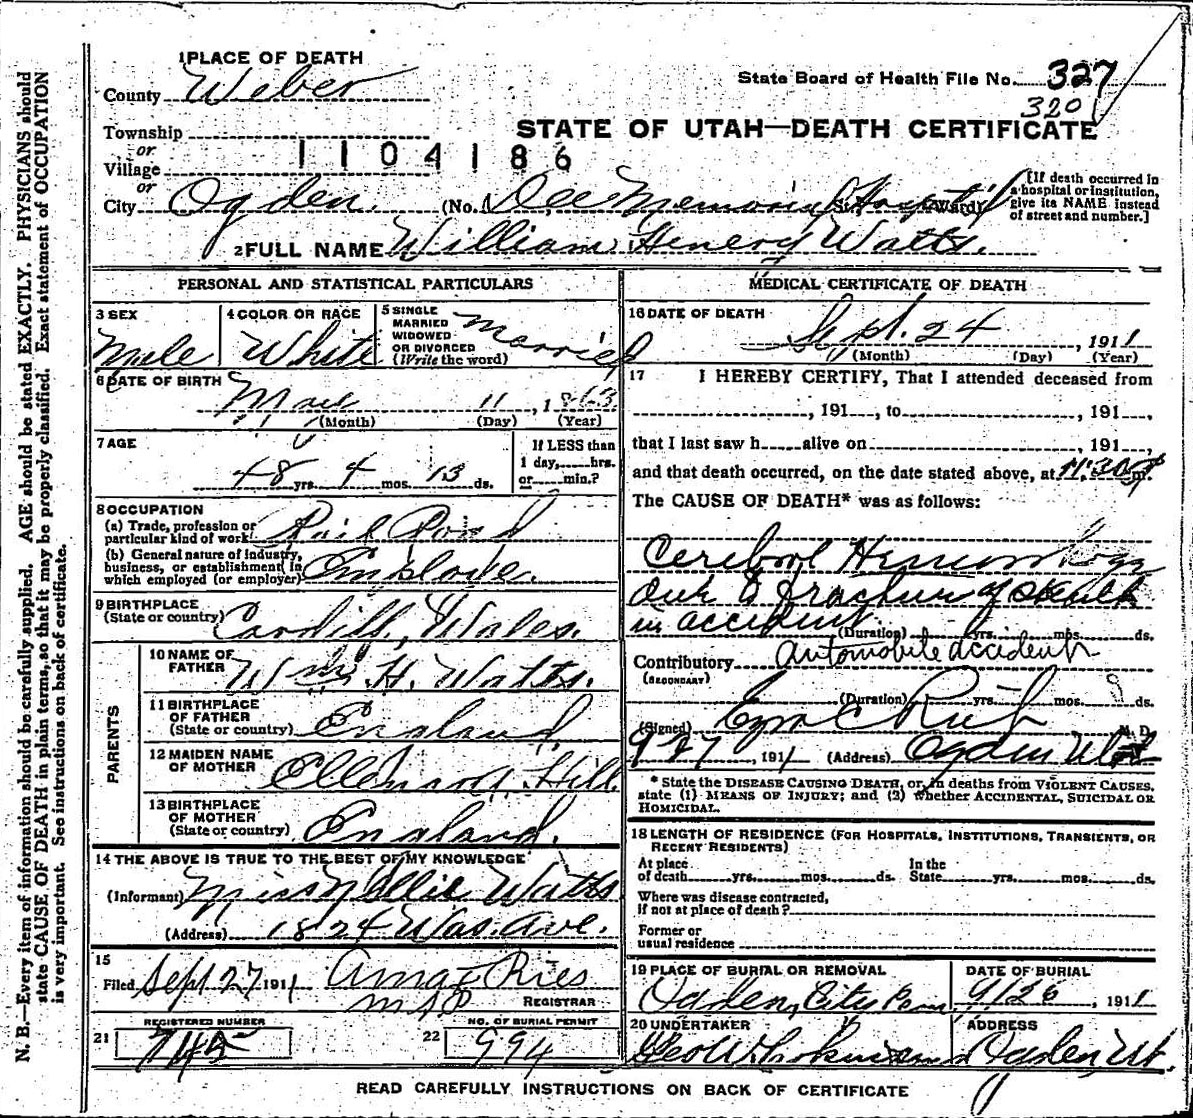 1 PLACE OF DEATH
County Weber
State Board of Health File No. 327
320
Township
or
Village
1104186
or
STATE OF UTAH—DEATH CERTIFICATE
City Ogden. (No. Dee Memorial Hospital St. Ward)
[If death occurred in a hospital or institution, give its NAME instead of street and number.]
2 FULL NAME William Henery Watts.
PERSONAL AND STATISTICAL PARTICULARS
3 SEX
Male
4 COLOR OR RACE
White
5 SINGLE
MARRIED
WIDOWED
OR DIVORCED
(Write the word)
Married
6 DATE OF BIRTH
11, 1863
(Month) (Day) (Year)
7 AGE
48 yrs. 4 mos. 13 ds.
If LESS than
1 day, hrs.
or min.?
8 OCCUPATION
(a) Trade, profession or
particular kind of work Rail Road
(b) General nature of industry,
business, or establishment in
which employed (or employer) Employe.
9 BIRTHPLACE
(State or country) Cardiff, Wales.
PARENTS
10 NAME OF
FATHER Wm. H. Watts.
11 BIRTHPLACE
OF FATHER
(State or country) England
12 MAIDEN NAME
OF MOTHER Hill
13 BIRTHPLACE
OF MOTHER
(State or country) England.
14 THE ABOVE IS TRUE TO THE BEST OF MY KNOWLEDGE
(Informant) Miss Nellie Watts
(Address) 1824 Was. Ave.
15
Filed Sept 27 1911
REGISTRAR
REGISTERED NUMBER
21 745
NO. OF BURIAL PERMIT
22 994
MEDICAL CERTIFICATE OF DEATH
16 DATE OF DEATH
Sept. 24, 1911
(Month) (Day) (Year)
17 I HEREBY CERTIFY, That I attended deceased from
, 191 , to , 191 ,
that I last saw h alive on , 191
and that death occurred, on the date stated above, at 11:30 P m.
The CAUSE OF DEATH* was as follows:
Cerebral Hemorrhage
due to fracture of skull
in accident
(Duration) yrs. mos. ds.
Contributory automobile accident
(SECONDARY)
(Duration) yrs. mos. ds.
(Signed) Ezra C Rich M. D.
9 27, 1911 (Address) Ogden Utah
* State the DISEASE CAUSING DEATH, or, in deaths from VIOLENT CAUSES,
state (1) MEANS OF INJURY; and (2) whether ACCIDENTAL, SUICIDAL OR
HOMICIDAL.
18 LENGTH OF RESIDENCE (FOR HOSPITALS, INSTITUTIONS, TRANSIENTS, OR
RECENT RESIDENTS)
At place
of death yrs. mos. ds.
In the
State yrs. mos. ds.
Where was disease contracted,
if not at place of death?
Former or
usual residence
19 PLACE OF BURIAL OR REMOVAL
Ogden City
DATE OF BURIAL
9/26, 1911
20 UNDERTAKER
Geo W.
ADDRESS
Ogden, Ut.
READ CAREFULLY INSTRUCTIONS ON BACK OF CERTIFICATE
N. B.—Every item of information should be carefully supplied. AGE should be stated EXACTLY. PHYSICIANS should
state CAUSE OF DEATH in plain terms, so that it may be properly classified. Exact statement of OCCUPATION
is very important. See instructions on back of certificate.